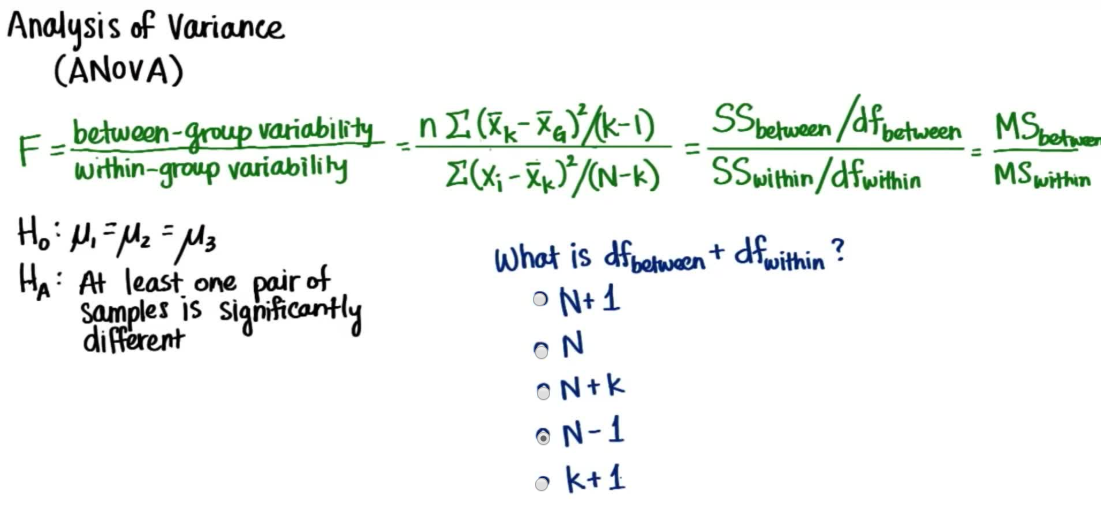 Analysis of Variance
(ANOVA)
F = between-group variability / within-group variability = n Σ(x̄ₖ - x̄_G)²/(k-1) / Σ(xᵢ - x̄ₖ)²/(N-k) = SSbetween/dfbetween / SSwithin/dfwithin = MSbetween / MSwithin
H₀: μ₁ = μ₂ = μ₃
H_A: At least one pair of
samples is significantly
different
What is dfbetween + dfwithin?
N+1
N
N+k
N-1
k+1